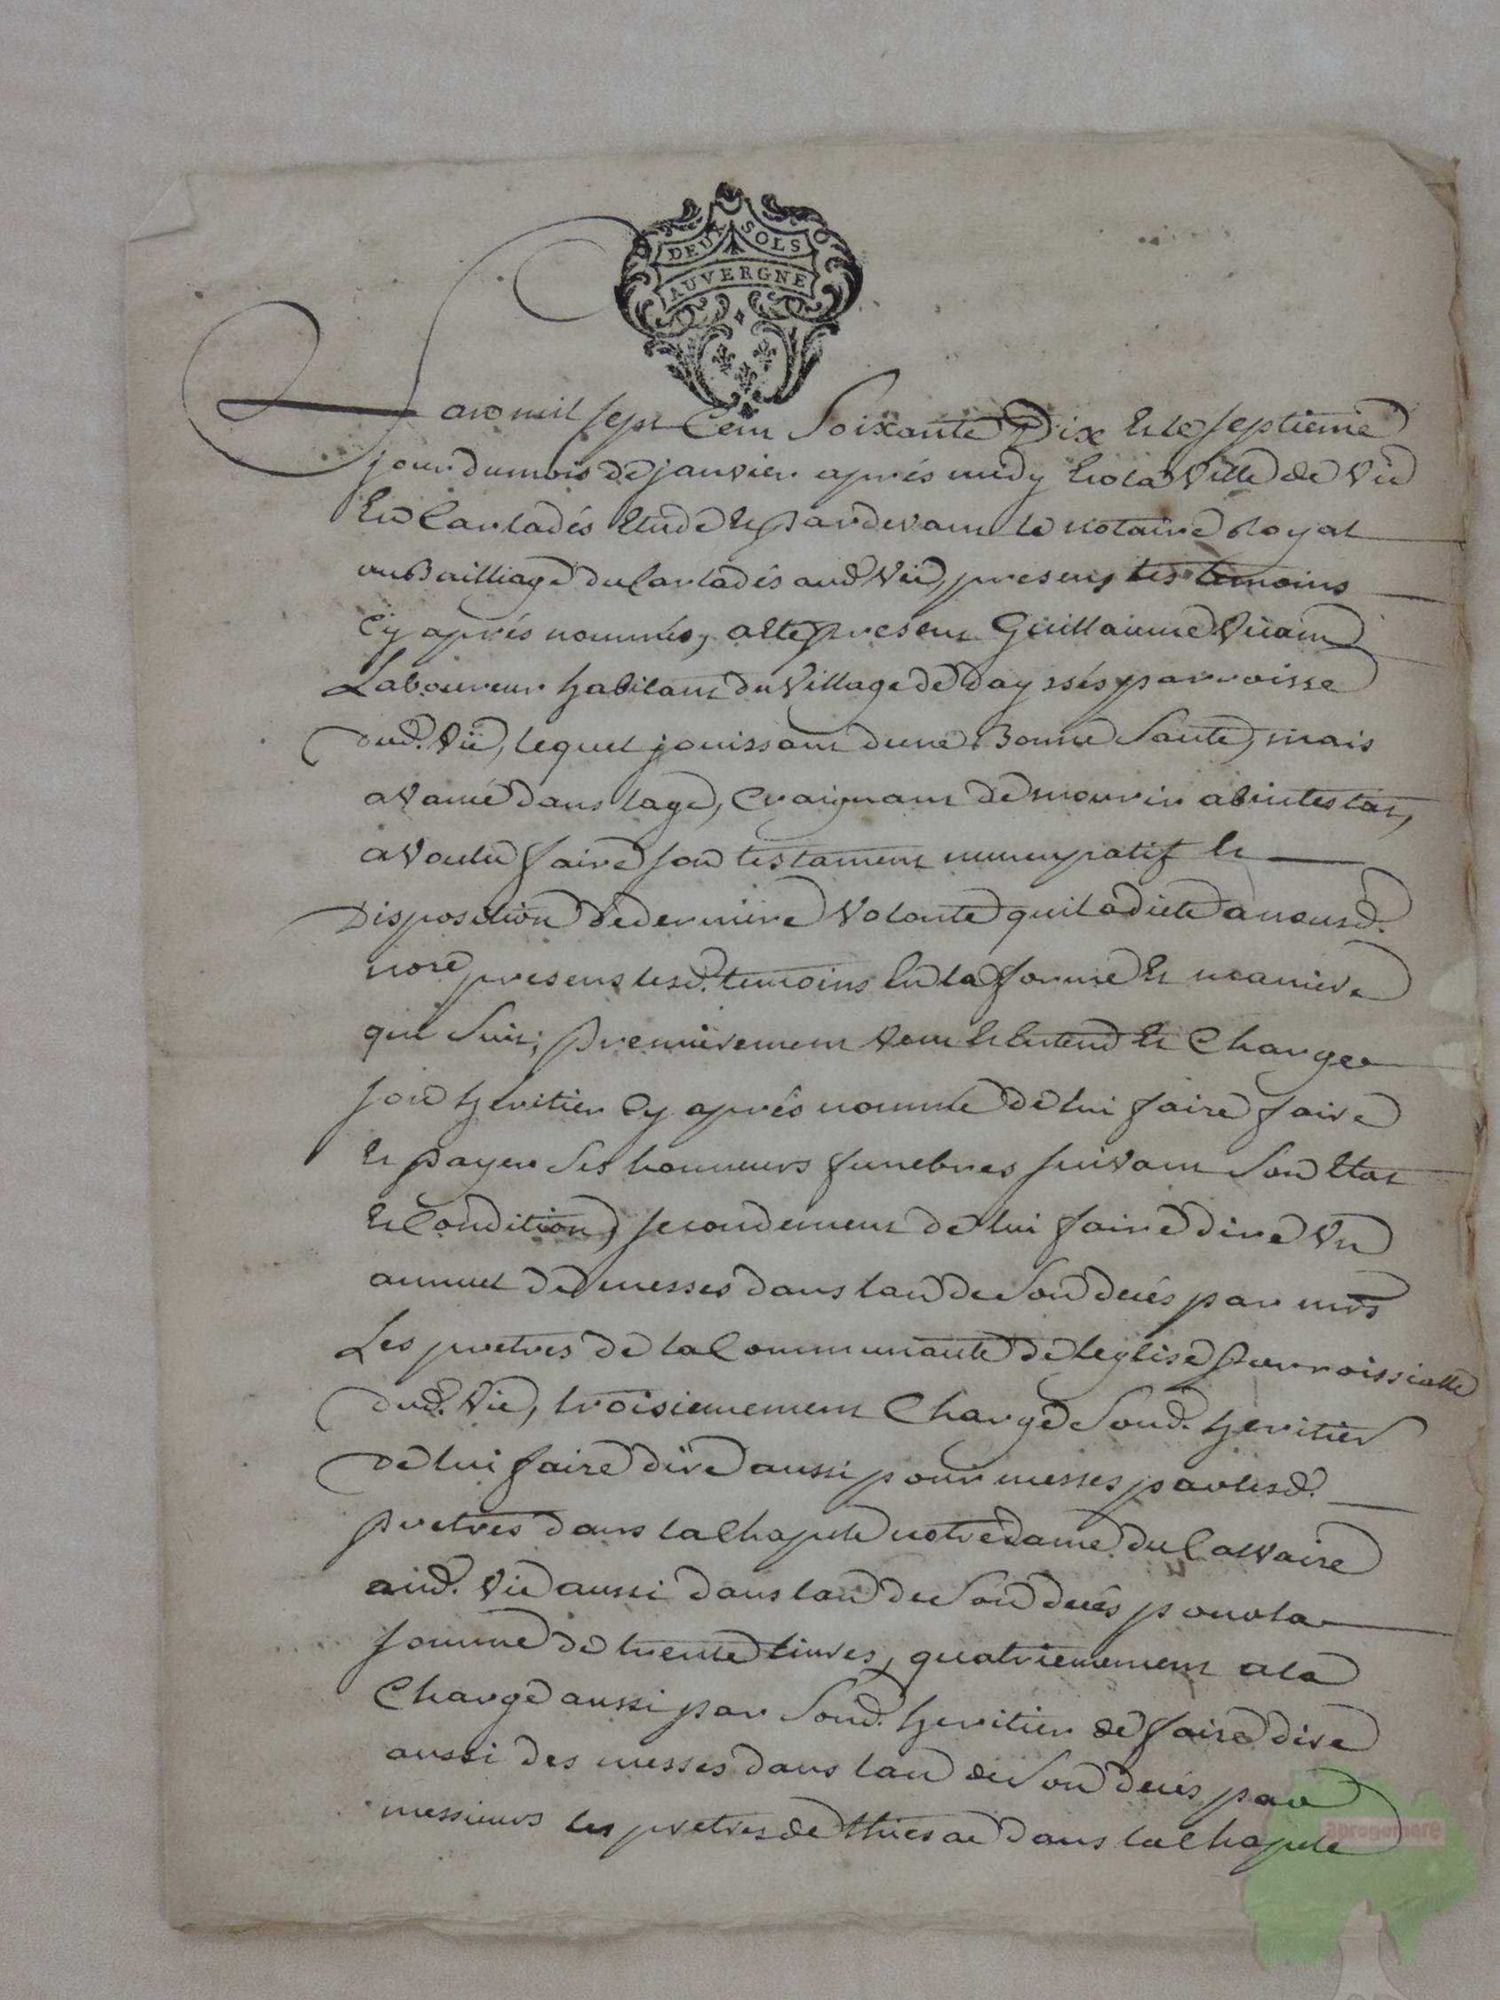 DEUX SOLS
AUVERGNE
Lan mil sept Cent Soixante Dix Et le septieme
jour du mois de janvier aprés midy En la Ville de Vic
En Carladés Etude Et pardevant le notaire Royal
au Bailliage du Carladés aud. Vic, presens les temoins
Cy aprés nommés, a Eté present Guillaume
Laboureur habitant du Village de Daysses parroisse
dud. Vic, lequel jouissant dune Bonne Santé, mais
avancé dans lage, Craignant de mourir abintestat,
a Voulu faire son testament nuncupatif Et
Disposition de derniere Volonté quil a dicté a nousd.
nore. presens lesd. temoins En la forme Et maniere
qui Suit; premierement Veut Et Entend Et Charge
son heritier Cy aprés nommé de lui faire faire
Et payer Ses honneurs funebres suivant Son Etat
Et Condition, secondement de lui faire dire Un
annuel de messes dans lan de Son decés par mrs
Les pretres de la Communauté de leglise parroissialle
dud. Vic, troisiemement Charge Sond. heritier
de lui faire dire aussi pour messes par lesd.
pretres dans la Chapele notre dame du Calvaire
aud. Vic aussi dans lan de Son decés pour la
somme de trente livres, quatriemement a la
Charge aussi par Sond. heritier de faire dire
aussi des messes dans lan de Son decés par
messieurs les pretres de thiesac dans la Chapele
aprogemere